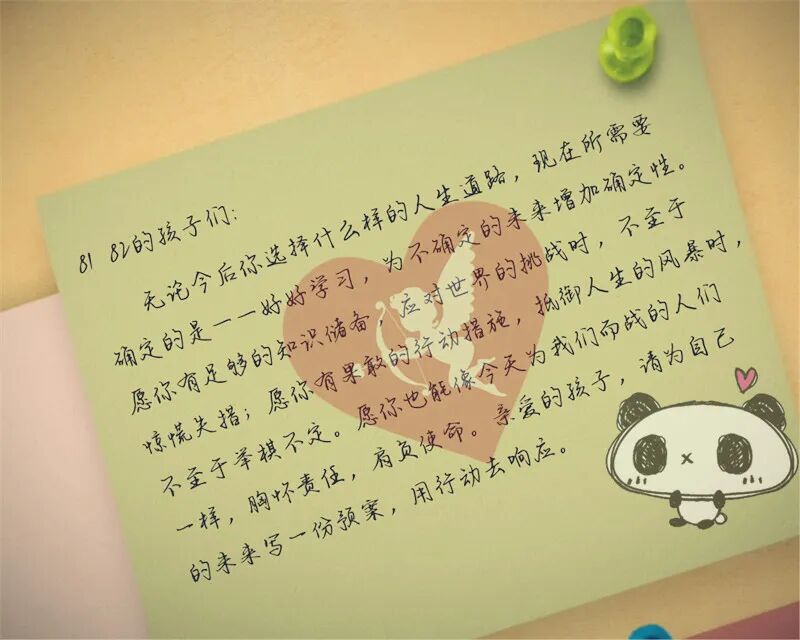 81 82的孩子们：
无论今后你选择什么样的人生道路，现在所需要
确定的是——好好学习，为不确定的未来增加确定性。
愿你有足够的知识储备，应对世界的挑战时，不至于
惊慌失措；愿你有果敢的行动措施，抵御人生的风暴时，
不至于举棋不定。愿你也能像今天为我们而战的人们
一样，胸怀责任，肩负使命。亲爱的孩子，请为自己
的未来写一份预案，用行动去响应。